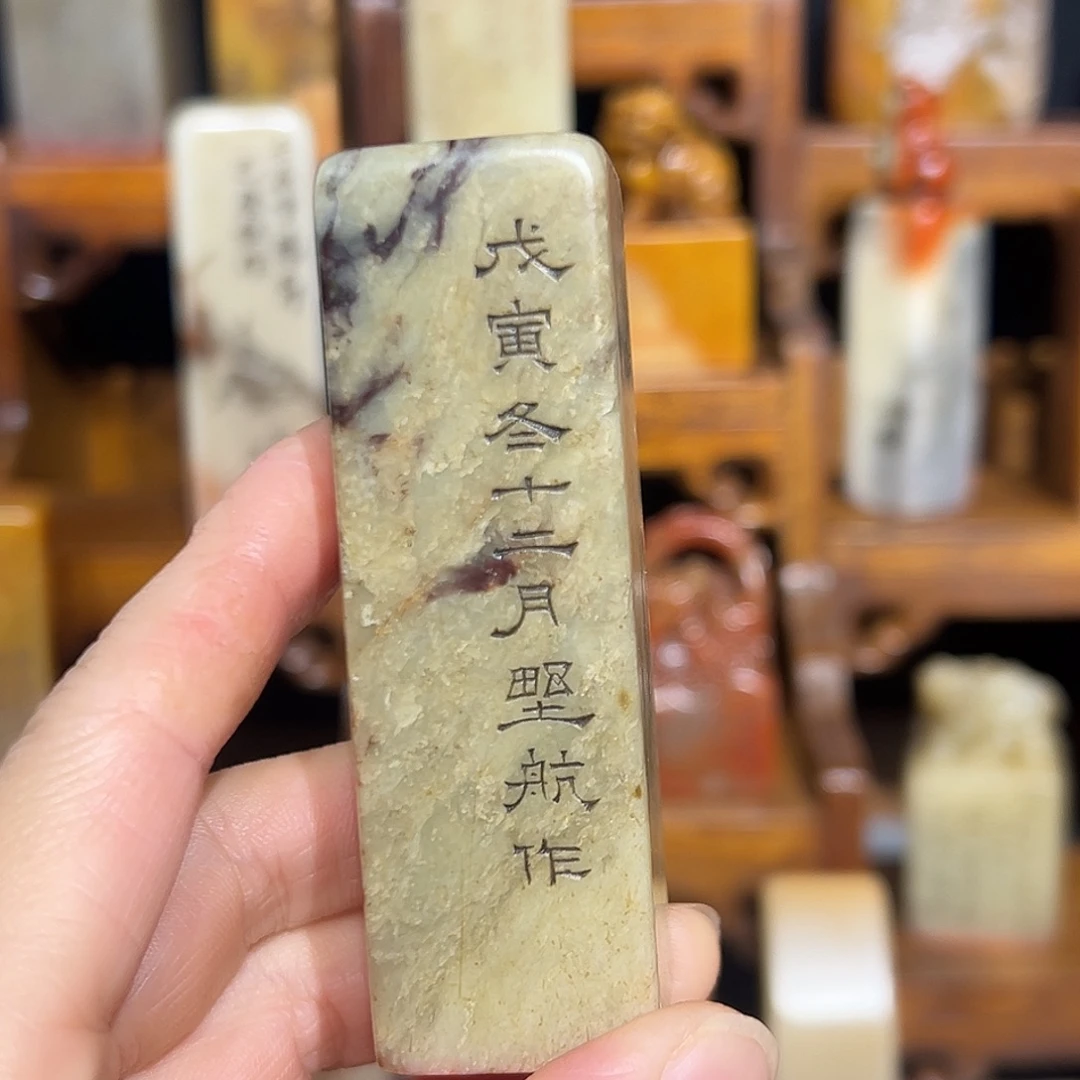 戊寅冬十二月墅航作